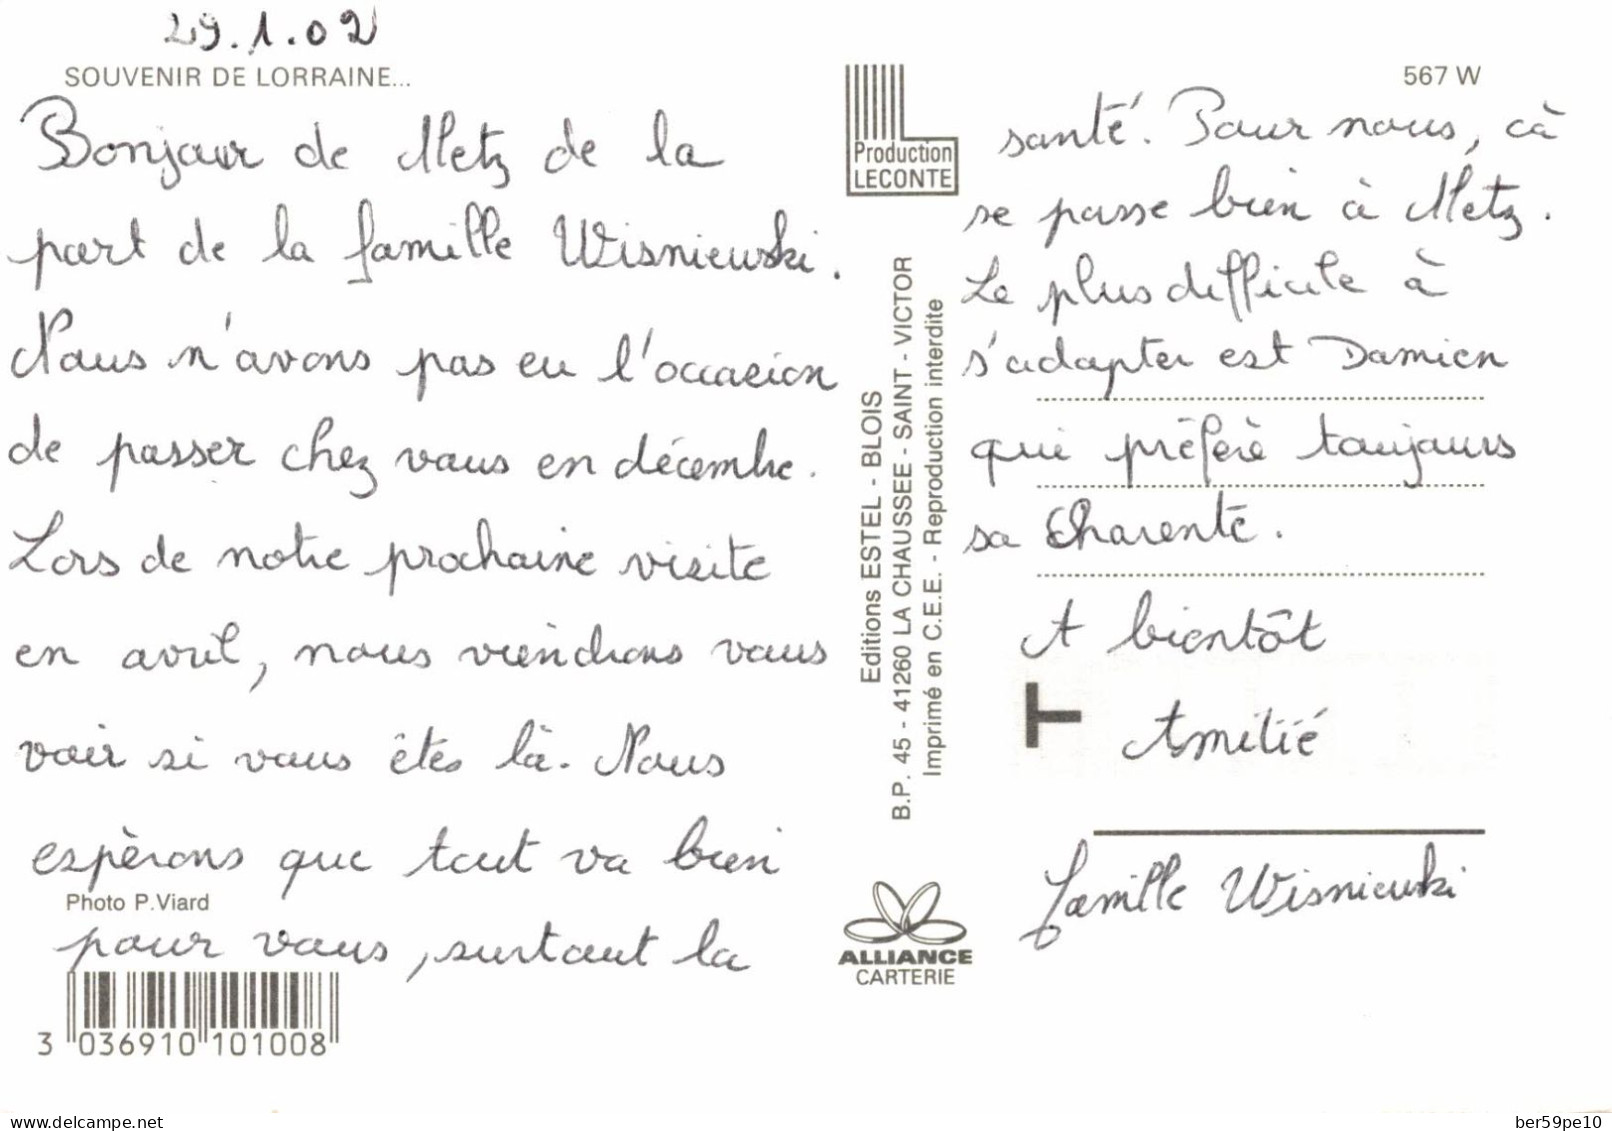 29.1.02
SOUVENIR DE LORRAINE...
Bonjour de Metz de la
part de la famille Wisniewski.
Nous n'avons pas eu l'occasion
de passer chez vous en décembre.
Lors de notre prochaine visite
en avril, nous viendrons vous
voir si vous êtes là. Nous
espèrons que tout va bien
Photo P.Viard
pour vous, surtout la
3 036910 101008
Production
LECONTE
Editions ESTEL - BLOIS
B.P. 45 - 41260 LA CHAUSSEE - SAINT - VICTOR
Imprimé en C.E.E. - Reproduction interdite
ALLIANCE
CARTERIE
567 W
santé. Pour nous, cà
se passe bien à Metz.
Le plus difficile à
s'adapter est Damien
qui préfèrè toujours
sa Charente.
A bientôt
Amitié
famille Wisniewski
delcampe.net
ber59pe10